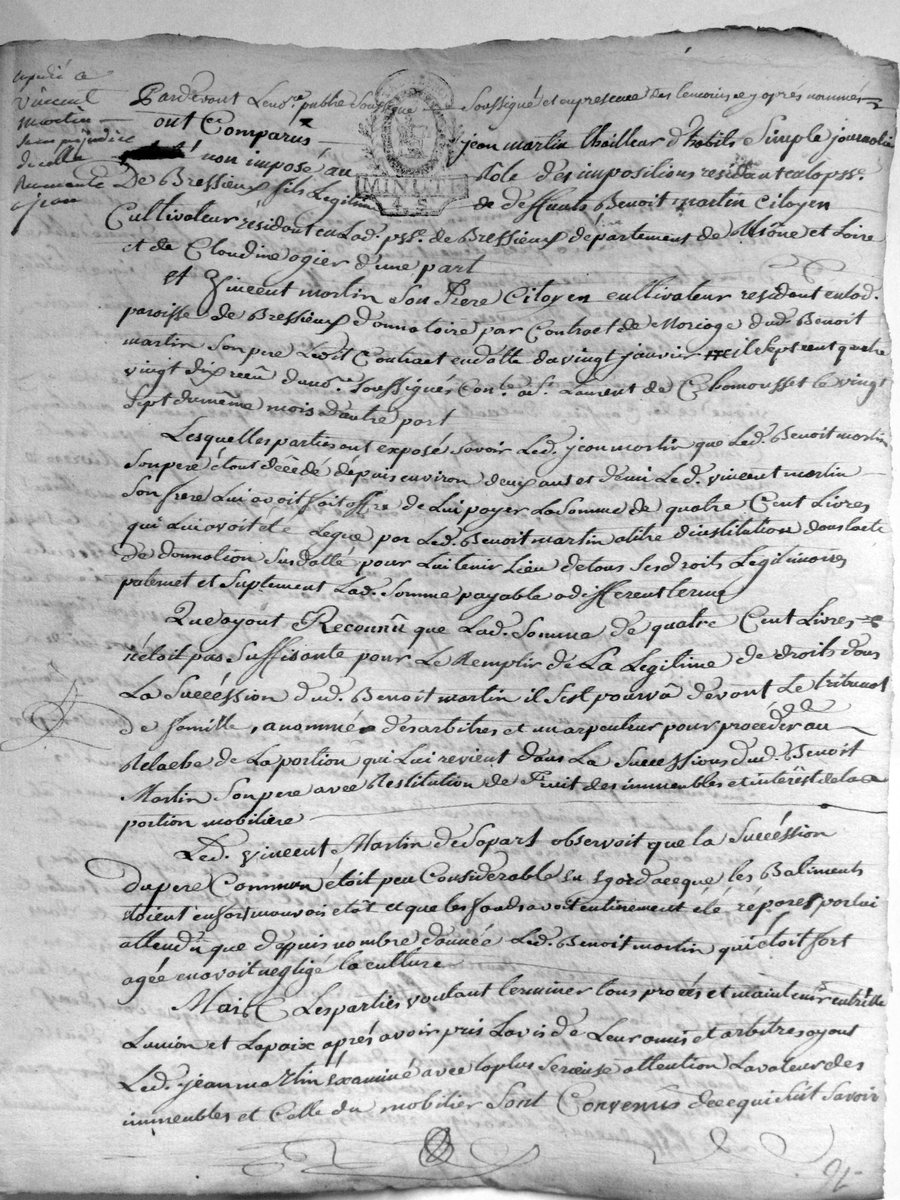 expedié a
Vincent
martin
sans préjudice
de celle
a jean
Pardevant Le no.re public Soussigné Soussigné et en presence des temoins cy apres nommés
ont Comparus jean martin thailleur d'habits Simple journalié
non imposé au Role des impositions residant en la psse.
MINUTE
4 S
De Bressieux fils Legitime de deffunts Benoit martin Citoyen
Cultivateur résidant en Lad. psse. de Bressieux département de Rhône et Loire
et de Claudine ogier d'une part
et Vincent martin Son frere Citoyen cultivateur resident en lad.
paroisse de Bressieux donnataire par Contract de Mariage dud. Benoit
martin Son pere Ledit Contract en datte du vingt janvier mil Sept cent quatre
vingt dix reçu du no.re Soussigné, Con.lé a St. Laurent de Chamousset le vingt
Sept du même mois d'autre part
Lesquelles parties ont exposé savoir Led. jean martin que Led. Benoit martin
Son pere étant décédé depuis environ deux ans et demi Led. vincent martin
Son frere Lui avoit fait offre de Lui payer La Somme de quatre Cent Livres
qui Lui avoit été Legué par Led. Benoit martin a titre d'institution dans lacte
de donnation Susdatté pour Lui tenir Lieu de tous Ses droits Legitimaires
paternet et Suplement Lad. Somme payable a different terme
Que ayant Reconnû que Lad. Somme de quatre Cent Livres
n'étoit pas Suffisante pour Le Remplir de La Legitime de droits dans
La Succéssion dud. Benoit martin il s'est pourvû devant Le tribunat
de famille, a nommé des arbitres et un arpenteur pour procéder au
Relache de La portion qui Lui revient dans La Successions dud. Benoit
Martin Son pere avec Restitution de Fruit des immeubles et intérêst de la
portion mobiliere
Led. Vincent Martin de Sa part observoit que la Succéssion
du pere Commun étoit peu Considerable eu egard a ce que les Batiments
étoient en fort mauvois état et que les fonds avoit entierement été réparés par lui
attendû que dappuis nombre dannée Led. Benoit martin qui étoit fort
agée en avoit negligé la culture
Mais Les parties voulant terminer tous procés et maintenir entr'elle
Lunion et La paix aprés avoir pris Lavis de Leur amis et arbitres ayant
Led. jean martin examiné avec la plus Serieuse attention La valeur des
immeubles et Celle du mobilier Sont Convenus de ce qui Suit Savoir